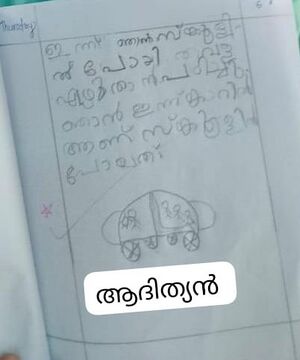 Thursday
ഇന്ന് ഞാൻ സ്കൂളി
ൽ പോയി
എഴുതാൻ പഠിച്ചു
ഞാൻ ഇന്ന് കാറിൽ
ആണ് സ്കൂളിൽ
പോയത്
ആദിത്യൻ